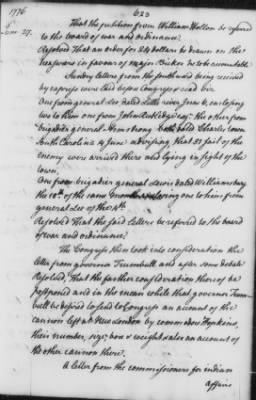 1776
623
June 27.
That the petition from William Holton be referred
to the board of war and ordinance.
Resolved That an order for 24 dollars be drawn on the
treasurers in favour of major Bicker he to be accountable
Sundry letters from the south ward being received
by express were laid before Congress & read viz
One from general Lee dated Little river June 6, enclosing
two to them one from John Rutledge esqr. the other from
brigadier general Armstrong both dated Charles town
South Carolina 4 June advising that 51 sail of the
enemy were arrived there and lying in sight of the
town,
One from brigadier general Lewis dated Williamsburg
the 12th. of the same month enclosing one to him from
general Lee of the 4th.
Resolved That the said Letters be referred to the board
of war and ordinance:
The Congress then took into consideration the
letter from governor Trumbull and after some debate
Resolved, That the farther consideration thereof be
postponed and in the mean while that governor Trum-
bull be desired to send to Congress an account of the
cannon left at New London by commodore Hopkins,
their number, size, bore & weight & also an account of
the other cannon there.
A letter from the commissioners for indian
affairs